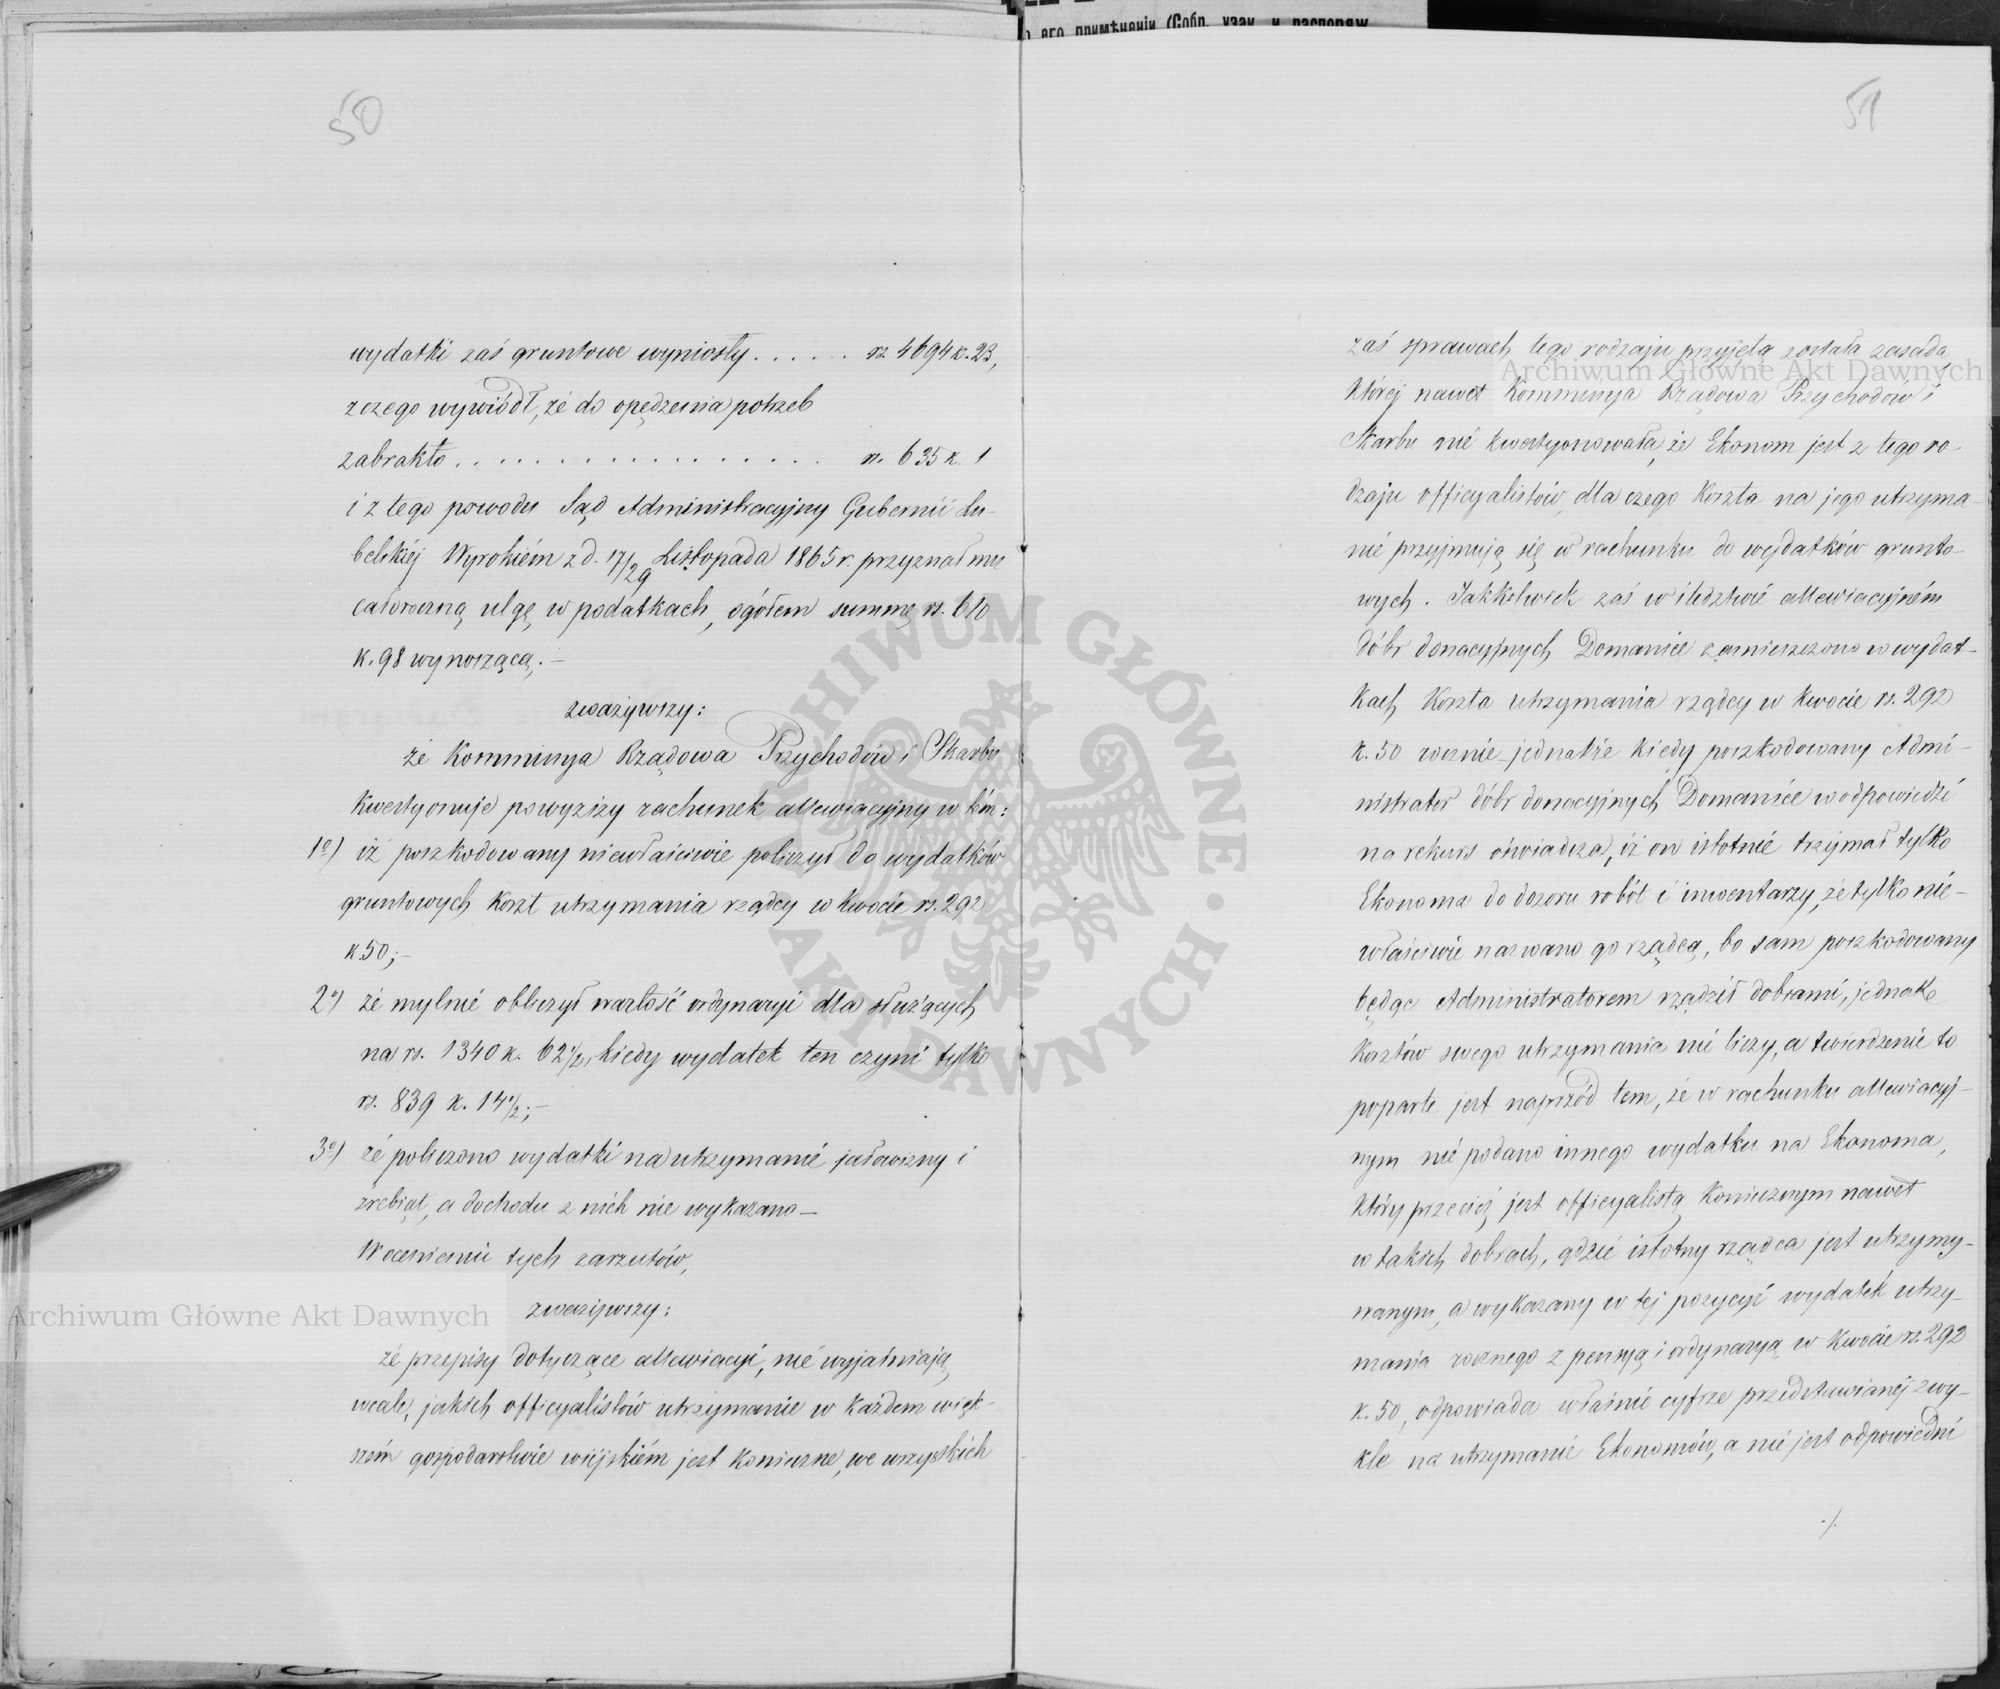 его примѣненіи (Собр. узак. и распоряж.
50
wydatki zaś gruntowe wyniosły . . . . . . rs 4694 k. 23,
z czego wywiódł, że do opędzenia potrzeb
zabrakło . . . . . . . . . . . . . . . . rs. 635 k. 1
i z tego powodu Sąd Administracyjny Gubernii Lu-
belskiéj Wyrokiém z d. 17/29 Listopada 1865 r. przyznał mu
całoroczną ulgę w podatkach, ogółem summę rs. 610
k. 98 wynoszącą. —
zważywszy:
że Kommissya Rządowa Przychodów i Skarbu
kwestyonuje powyższy rachunek allewiacyjny w tém:
1o) iż poszkodowany niewłaściwie policzył do wydatków
gruntowych koszt utrzymania rządcy w kwocie rs. 292
k. 50; —
2o) że mylnie obliczył wartość ordynaryi dla służących
na rs. 1340 k. 62 1/2, kiedy wydatek ten czyni tylko
rs. 839 k. 14 1/2; —
3o) że policzono wydatki na utrzymanie jałowizny i
źrebiąt, a dochodu z nich nie wykazano —
W ocenieniu tych zarzutów,
zważywszy:
że przepisy dotyczące allewiacyi, nie wyjaśniają
wcale, jakich officyalistów utrzymanie w każdem więk-
szém gospodarstwie wiejskiém jest konieczne, we wszystkich
51
zaś sprawach tego rodzaju przyjętą została zasada,
której nawet Kommissya Rządowa Przychodów i
Skarbu nie kwestyonowała, że Ekonom jest z tego ro-
dzaju officyalistów, dla czego koszta na jego utrzyma-
nie przyjmują się w rachunku do wydatków grunto-
wych. Jakkolwiek zaś w śledztwie allewiacyjném
dóbr donacyjnych Domanice zamieszczono w wydat-
kach koszta utrzymania rządcy w kwocie rs. 292
k. 50 rocznie jednakże kiedy poszkodowany Admi-
nistrator dóbr donacyjnych Domanice w odpowiedzi
na rekurs oświadcza, iż on istotnie trzymał tylko
Ekonoma do dozoru robót i inwentarzy, że tylko nie-
właściwie nazwano go rządcą, bo sam poszkodowany
będąc Administratorem rządził dobrami, jednak
kosztów swego utrzymania nie liczy, a twierdzenie to
poparte jest naprzód tem, że w rachunku allewiacyj-
nym nie podano innego wydatku na Ekonoma,
który przecież jest officyalistą koniecznym nawet
w takich dobrach, gdzie istotny rządca jest utrzymy-
wanym, a wykazany w tej pozycyi wydatek utrzy-
mania rocznego z pensyą i ordynaryą w kwocie rs. 292
k. 50, odpowiada właśnie cyfrze przedstawianéj zwy-
kle na utrzymanie Ekonomów, a nie jest odpowiedni
./.
Archiwum Główne Akt Dawnych
Archiwum Główne Akt Dawnych
ARCHIWUM GŁÓWNE · AKT DAWNYCH ·